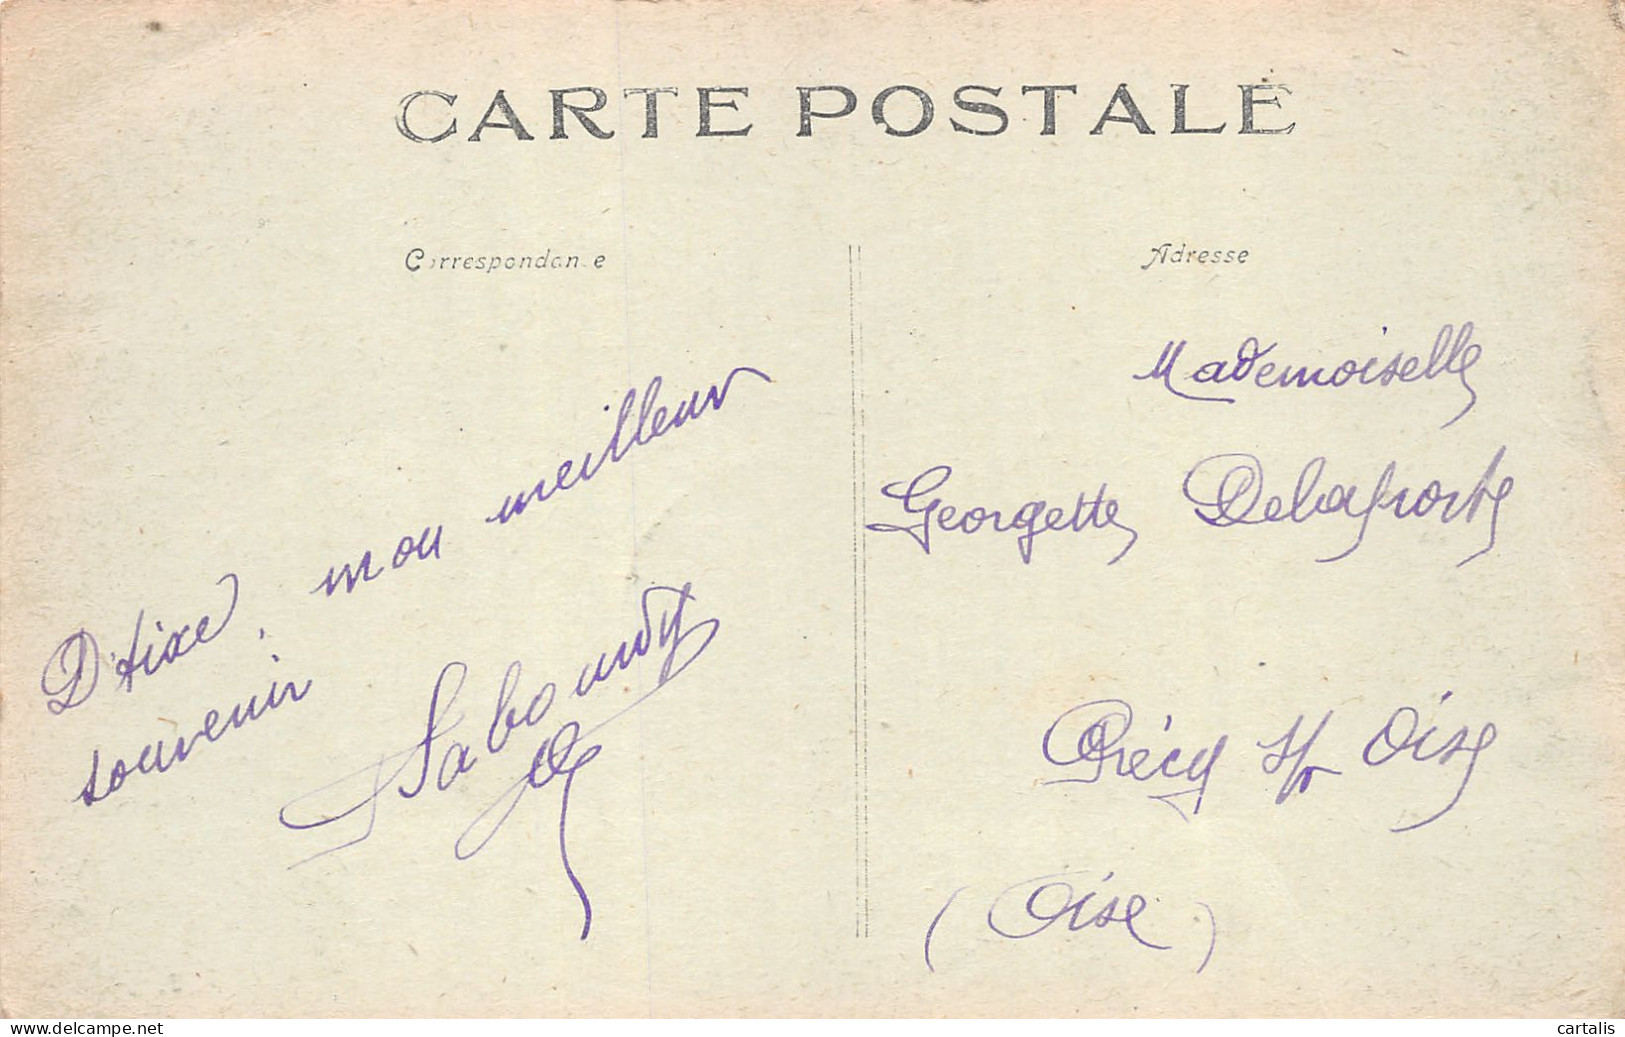 CARTE POSTALE
Correspondance
D'Aixe, mon meilleur
souvenir
Adresse
Mademoiselle
Georgette Delaporte
Précy s/r Oise
(Oise)
www.delcampe.net
cartalis